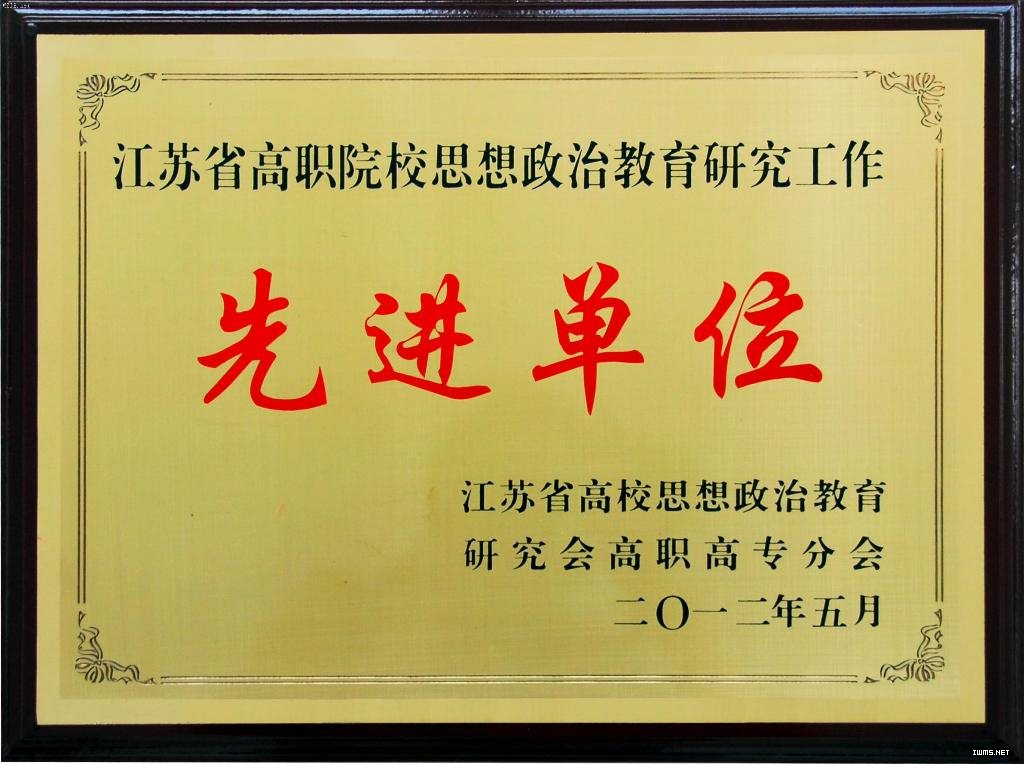 江苏省高职院校思想政治教育研究工作
先进单位
江苏省高校思想政治教育
研究会高职高专分会
二〇一二年五月
IWMS.NET